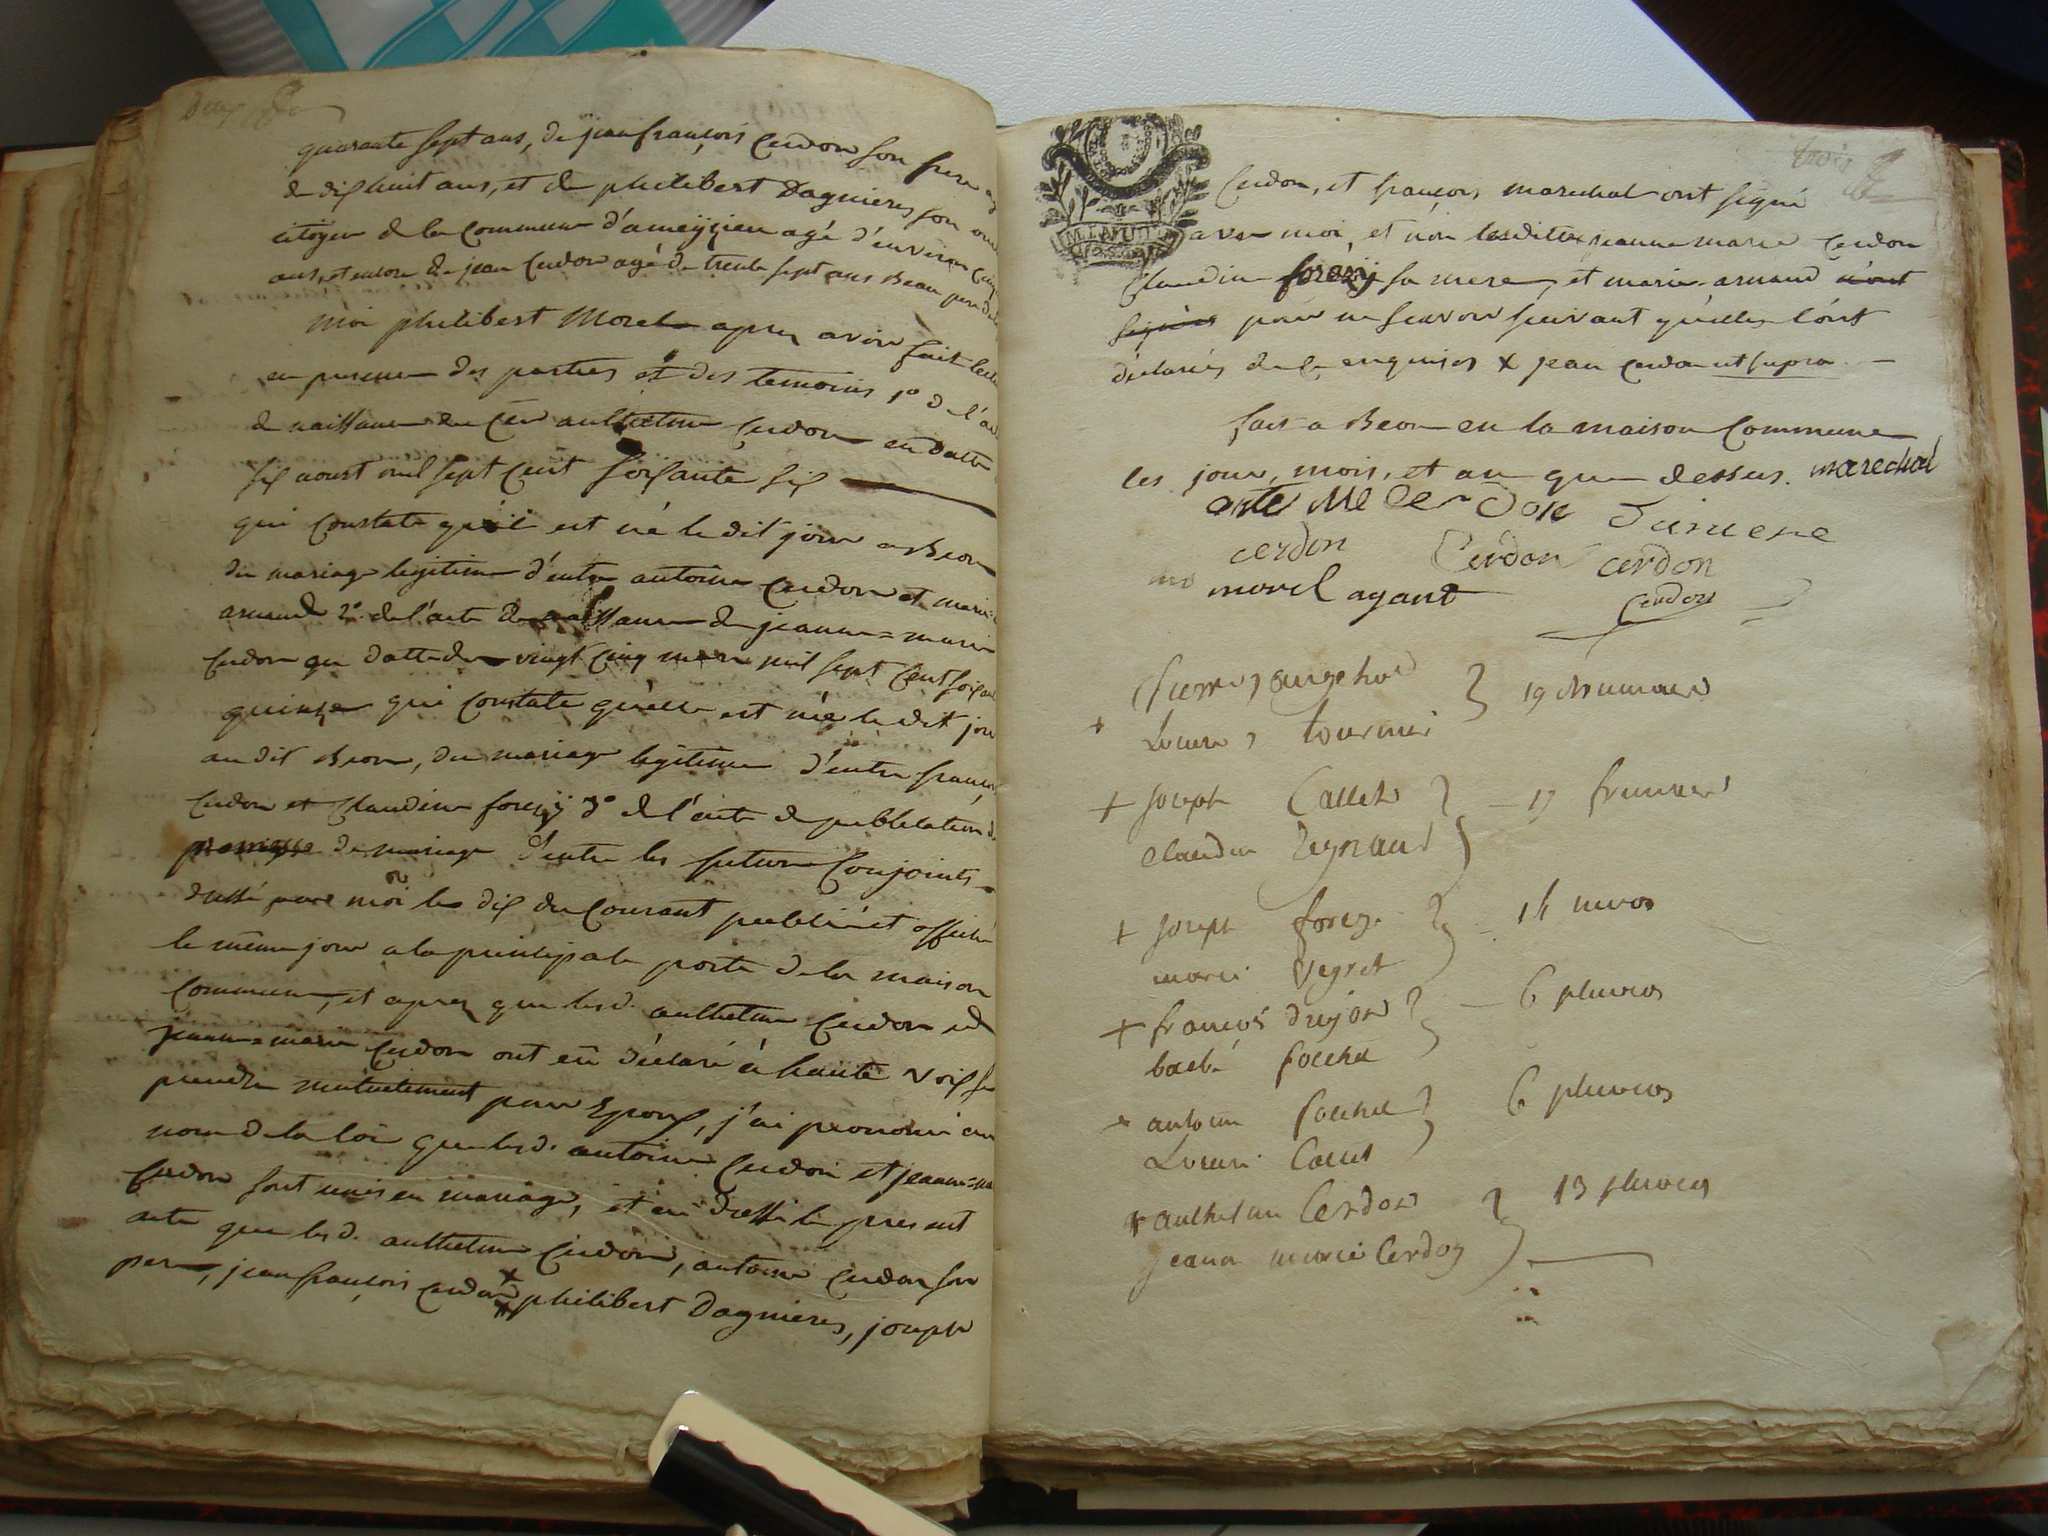 quarante sept ans, de jean françois Cerdon son frere agé
de dix huit ans, et de philibert Dagnieres son
citoyen de la commune d'ameyzieu agé d'environ
ans, et encore de jean Cerdon agé de trente sept ans Beau pere
moi philibert Morel apres avoir fait
en presence des parties et des temoins 1° de l'acte
de naissance du anthelme Cerdon en datte
six aoust mil sept cent soixante six
qui constate qu'il est né le dit jour a Beon
du mariage legitime d'entre antoine Cerdon et marie
arnaud 2° de l'acte de naissance de jeanne=marie
Cerdon en datte du vingt cinq mars mil sept cent soixante
quinze qui constate qu'elle est née le dit jour
au dit Beon, du mariage legitime d'entre françois
Cerdon et Claudine forezij 3° de l'acte de publication de
promesse de mariage d'entre les futurs Conjoints
dressé par moi le dix du Courant publié et affiché
le même jour a la principale porte de la maison
Commune, et apres que lesd. anthelme Cerdon et
jeanne=marie Cerdon ont eu déclaré à haute voix se
prendre mutuellement pour Epoux, j'ai prononcé au
nom de la loi que lesd. antoine Cerdon et jeanne=ma
Cerdon sont unis en mariage, et ai dressé le present
acte que lesd. anthelme Cerdon, antoine Cerdon son
pere, jean françois cerdon x philibert Dagnieres, joseph
trois
Cerdon, et françois marechal ont signé
avec moi, et non lesdittes jeanne marie Cerdon
Claudine forezij sa mere, et marie arnaud n'ont
signées pour ne scavoir suivant qu'elles l'ont
déclarés de ce enquises x jean cerdon ut supra
fait a Beon en la maison Commune
les jour, mois, et an que dessus. marechal
ante Me Cerdon
cerdon Cerdon cerdon
morel agant Cerdon
19 Brumaire
Louise tournier
+ joseph Callet 17 frimaire
Claudine Reynaud
+ joseph forezi 14 nivos
marie Veyret
+ françois drujon 6 pluvios
barbe pochet
antoine pochet 6 pluvios
Louise Callet
+ anthelme Cerdon 13 pluvios
jeanne marie Cerdon